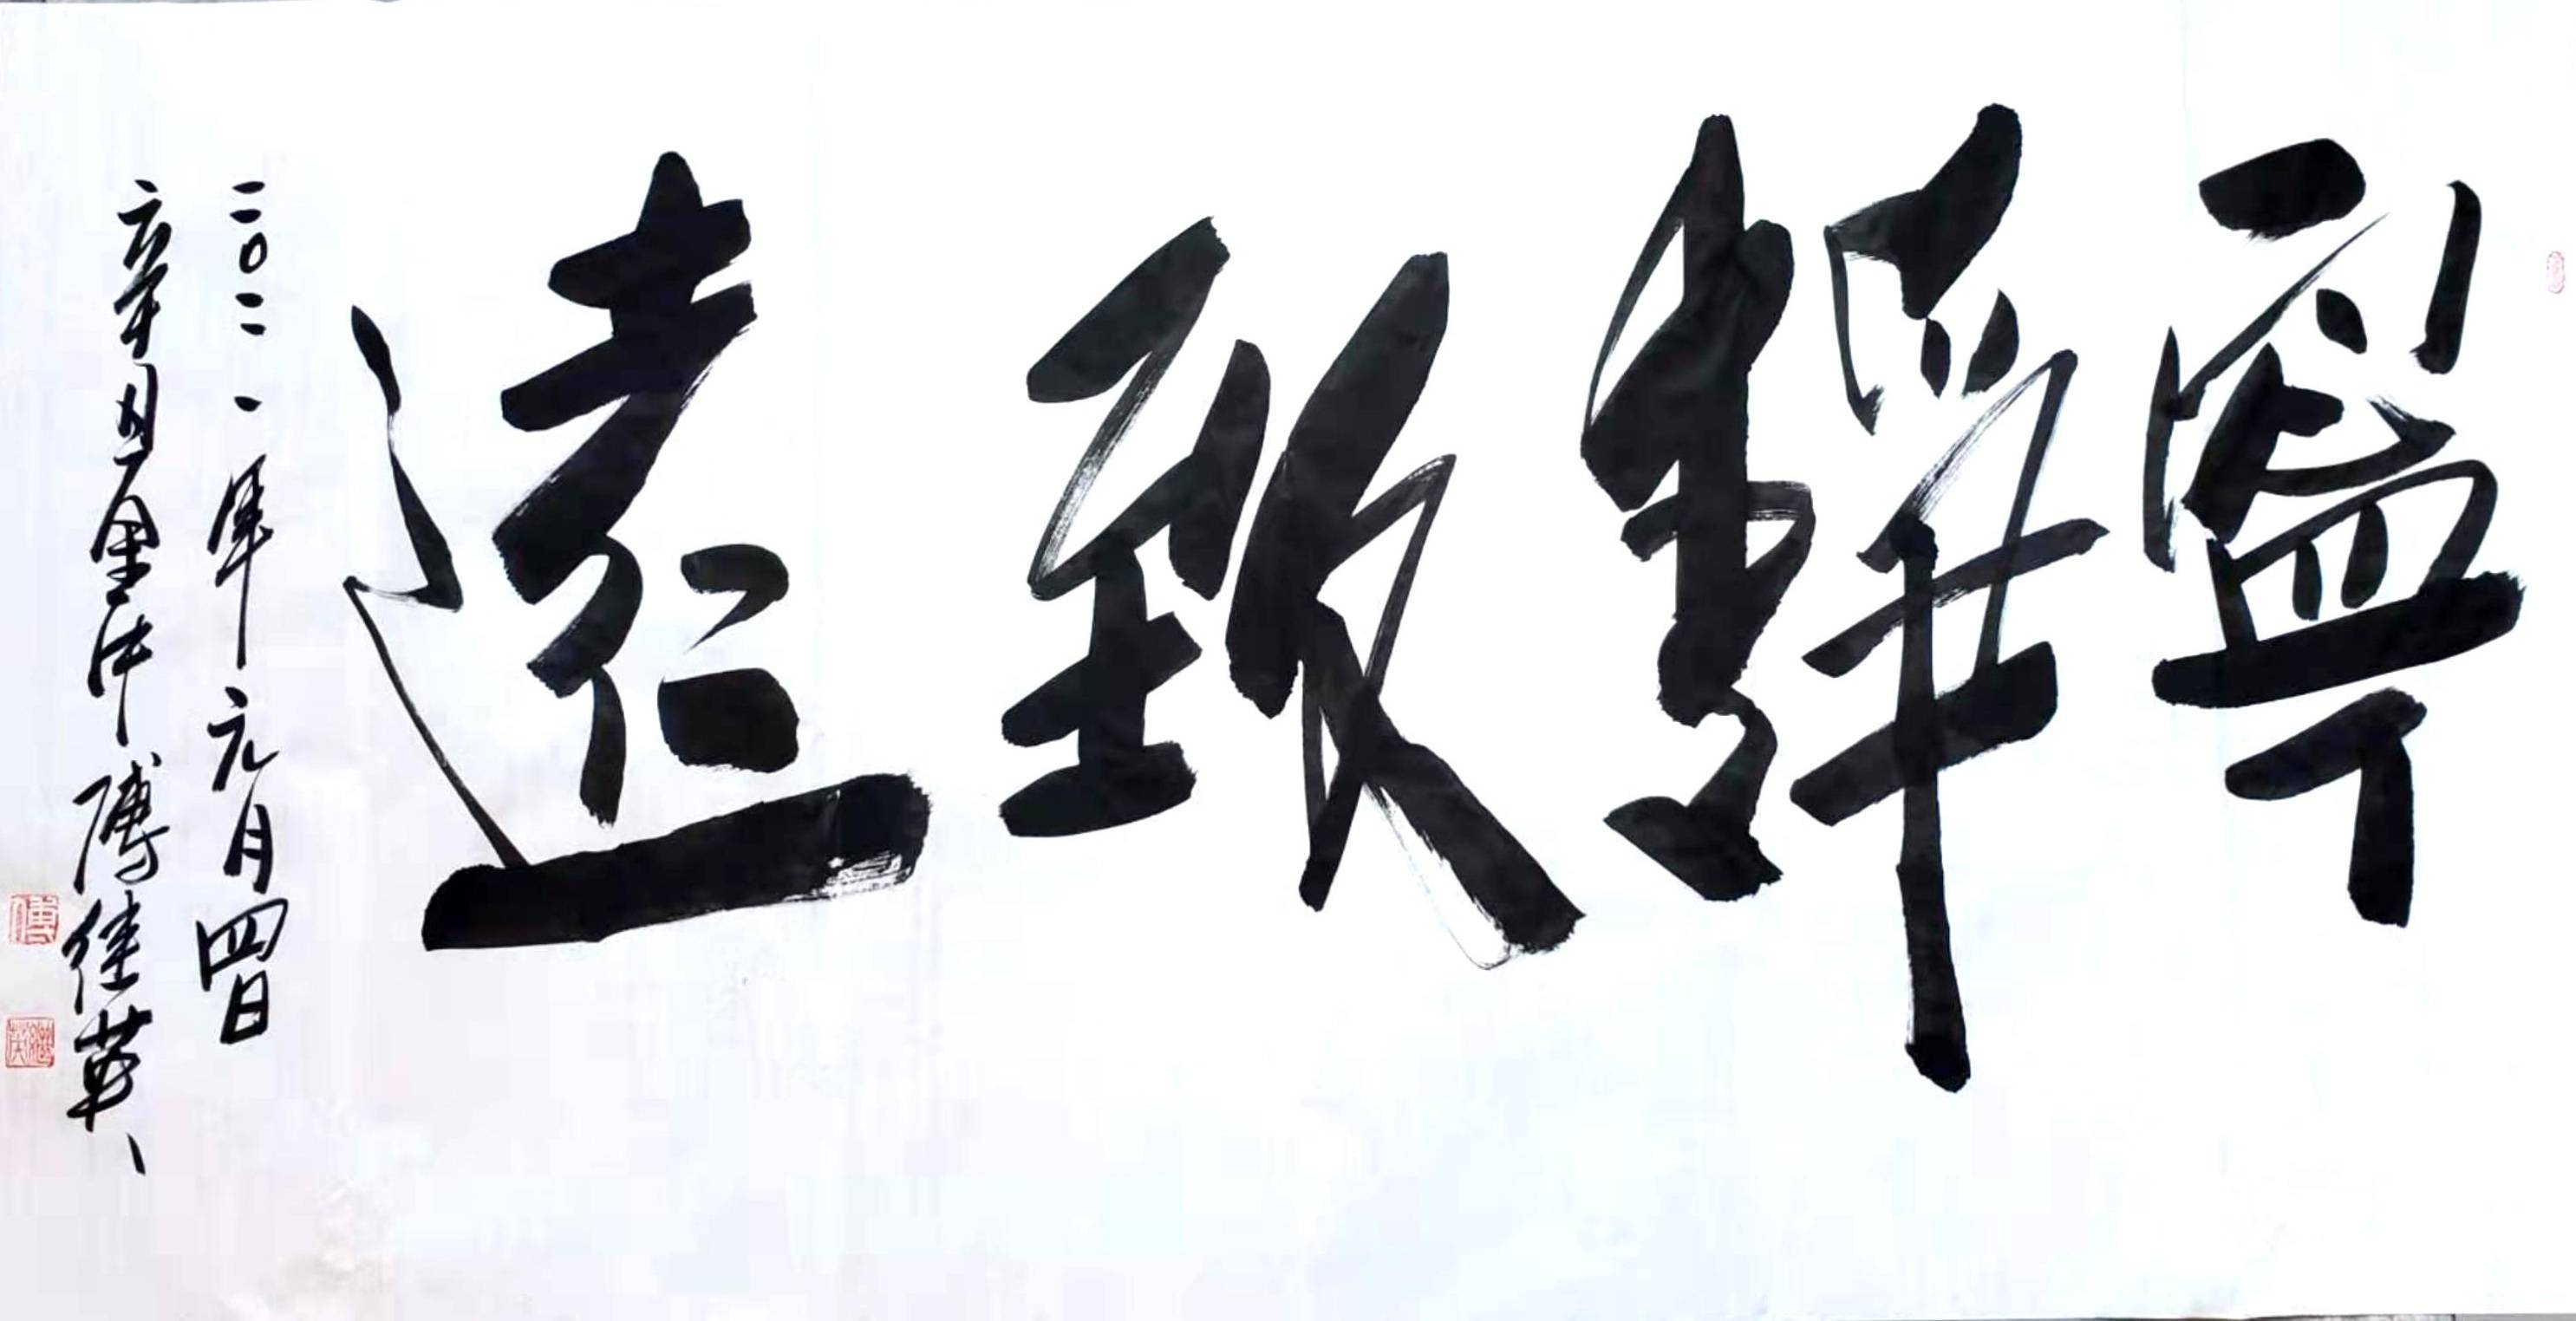 寧靜致遠
二〇二一年元月四日
辛丑 傅继英
傅
继英